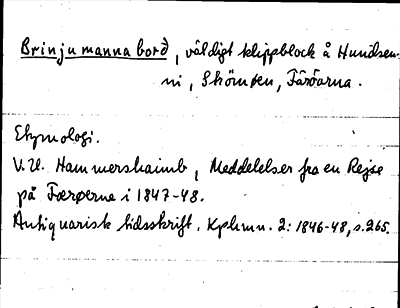 Brinjumannaborð, väldigt klippblock å Hundsen-
ni, Skömøen, Färöarna.
Etymologi.
V.U. Hammershaimb, Meddelelser fra en Rejse
på Færøerne i 1847-48.
Antiquarisk tidsskrift. Kphmn. 2: 1846-48, s. 265.